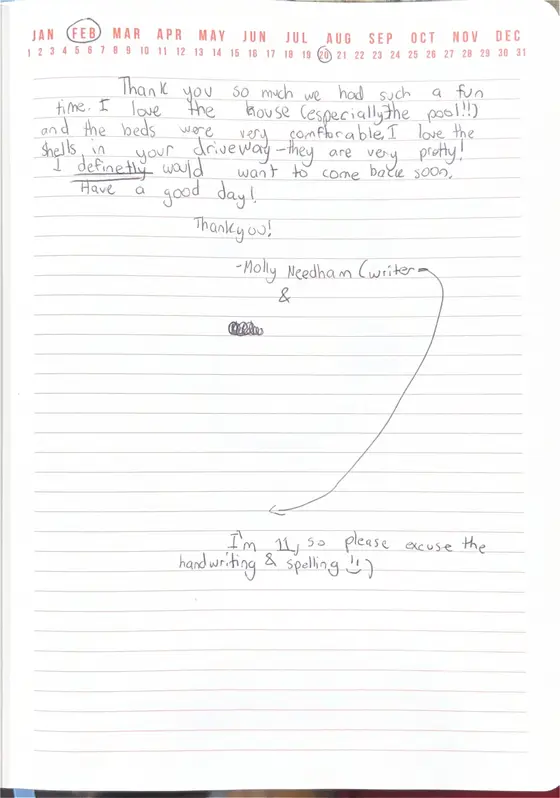 JAN FEB MAR APR MAY JUN JUL AUG SEP OCT NOV DEC
1 2 3 4 5 6 7 8 9 10 11 12 13 14 15 16 17 18 19 20 21 22 23 24 25 26 27 28 29 30 31
Thank you so much we had such a fun
time. I love the house (especially the pool!!)
and the beds were very comftorable. I love the
shells in your driveway - they are very pretty!
I definetly would want to come back soon.
Have a good day!
Thankyou!
-Molly Needham (writer
&
I'm 11, so please excuse the
handwriting & spelling !!)